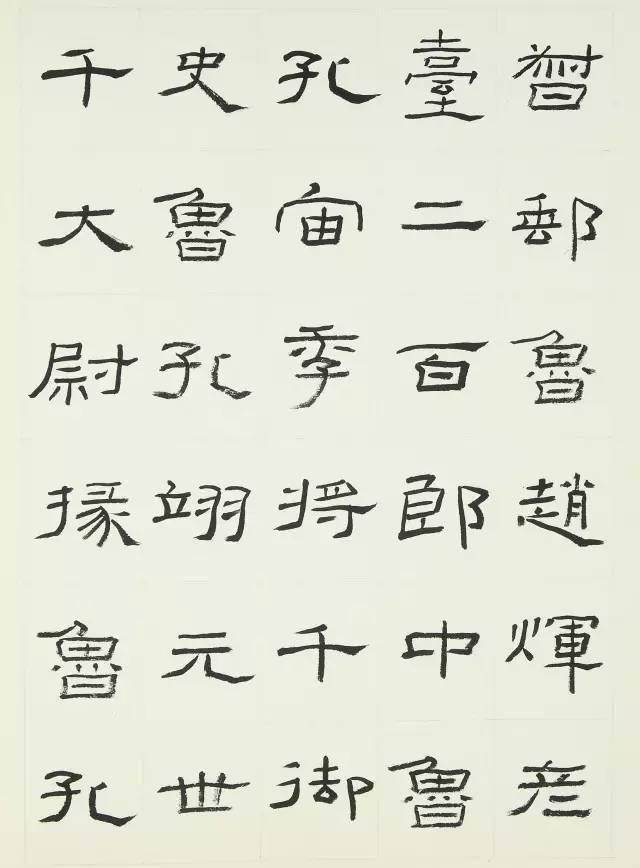 督郵魯趙煇彦
臺二百郎中魯
孔宙季將千御
史魯孔翊元世
千大尉掾魯孔